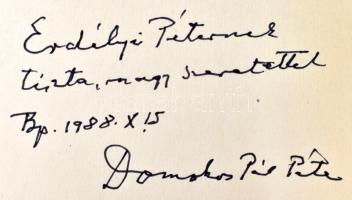 Erdélyi Péternek
tiszta, nagy szeretettel
Bp. 1988. X. 15
Domokos Pál Péter